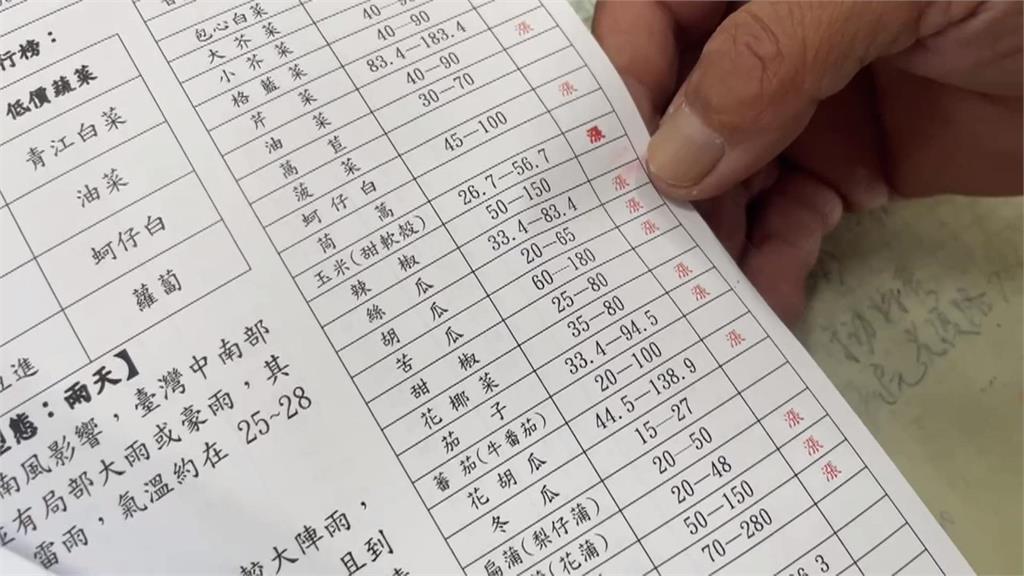 行榜：
低價蔬菜
青江白菜
油菜
蚵仔白
蘿蔔
進
態：雨天】
南風影響，臺灣中南部
有局部大雨或豪雨，其
雷雨，氣溫約在 25~28
較大陣雨，
且到
包心白菜
大芥菜
小芥菜
格藍菜
芹菜
油菜
萵苣
菠菜
蚵仔白
茼萵
玉米(甜軟殼)
辣椒
絲瓜
胡瓜
苦瓜
甜椒
花椰菜
茄子
番茄(牛番茄)
花胡瓜
冬瓜
扁蒲(梨仔蒲)
(花蒲)
40—90
83.4—183.4
40—90
30—70
45—100
26.7—56.7
50—150
33.4—83.4
20—65
60—180
25—80
35—80
33.4—94.5
20—100
44.5—138.9
15—27
20—50
20—48
50—150
70—280
漲
漲
漲
漲
漲
漲
漲
漲
漲
漲
漲
漲